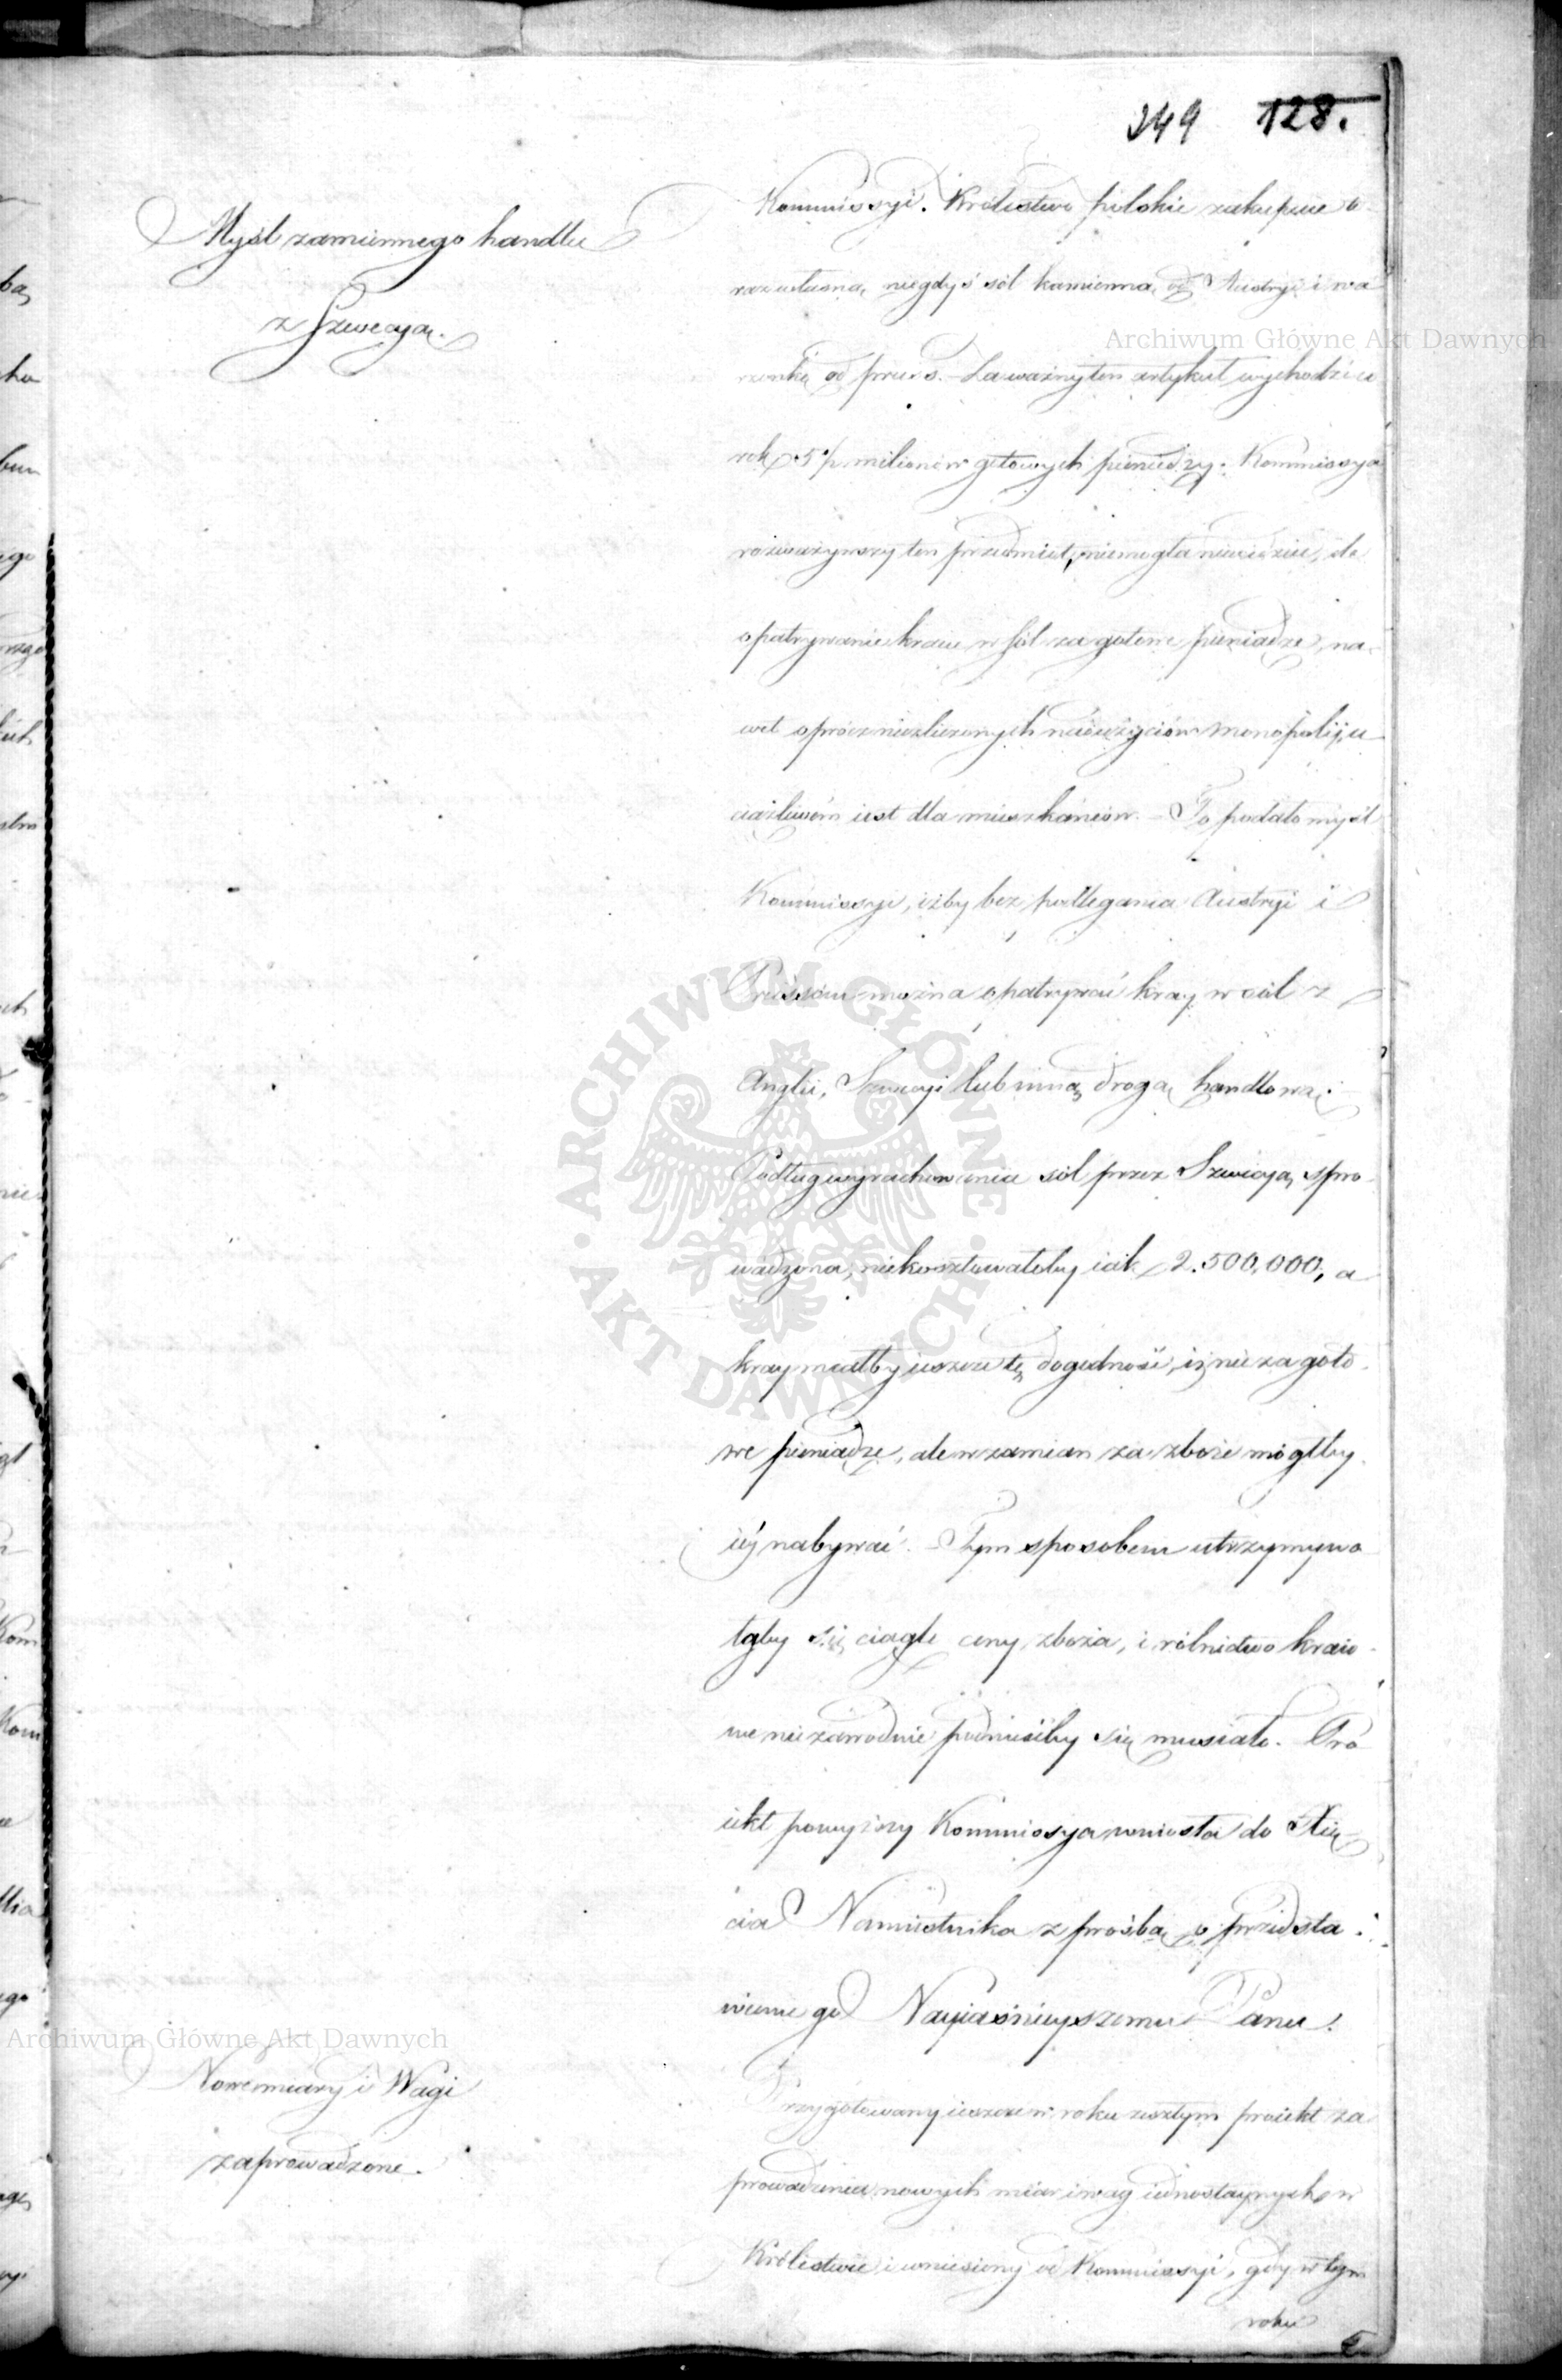 349 128.
Myśl zamiennego handlu
z Szwecyą.
Kommissyi. Królestwo polskie zakupuie o-
raz własną niegdyś sól kamienną od Austryi i wa-
rzonkę od pruss. Za ważny ten artykuł wychodzi co
rok 5 1/2 milionów gotowych pieniędzy. Kommissya
rozważywszy ten przedmiot, niemogła niewidzieć, ile
opatrywanie kraiu w sól za gotowe pieniądze, na-
wet oprócz niezliczonych nadużyciów monopoliiu
uciążliwém iest dla mieszkańców. – To podało myśl
Kommissyi, iżby bez podlegania Austryi i
Prussom można opatrywać kray w sól z
Anglii, Szwecyi lub inną drogą handlową.
Podług wyrachowania sól przez Szwecyą spro-
wadzona, niekosztowałaby iak 2.500,000, a
kray miałby ieszcze tę dogodność, iż nie za goto-
we pieniądze, ale w zamian za zboże mógłby
iéy nabywać. – Tym sposobem utrzymywa
łyby się ciągle ceny zboża, i rólnictwo kraio-
we niezawodnie podnieśćby się musiało. Pro
iekt powyższy Kommissya wniosła do Xię-
cia Namiestnika z prośbą o przedsta-
wienie go Nayiaśnieyszemu Panu.
Nowe miary i Wagi
zaprowadzone.
Przygotowany ieszcze w roku zeszłym proiekt za
prowadzenia nowych miar i wag iednostaynych w
Królestwie i wniesiony od Kommissyi, gdy w tym
roku
Archiwum Główne Akt Dawnych
Archiwum Główne Akt Dawnych
ARCHIWUM GŁÓWNE · AKT DAWNYCH ·